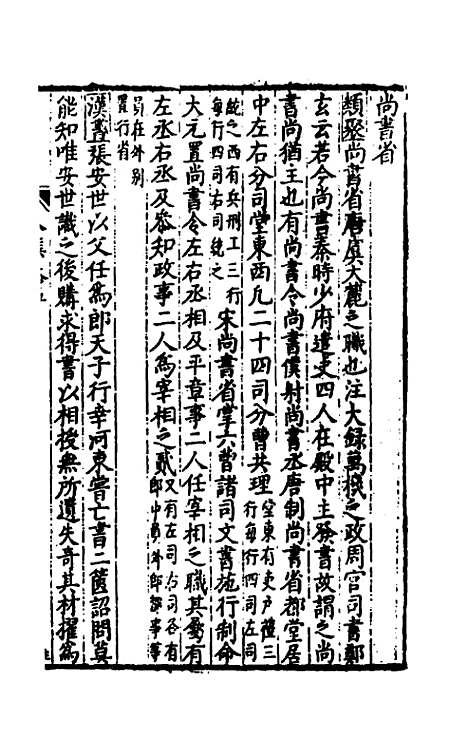 尚書省
類聚尚書省唐虞大麓之職也注大録萬機之政周官司書鄭
玄云若今尚書秦時少府遣吏四人在殿中主發書故謂之尚
書尚猶主也有尚書令尚書僕射尚書丞唐制尚書省都堂居
中左右分司堂東西凡二十四司分曹共理堂東有吏戶禮三
行每行四司左司
統之西有兵刑工三行
每行四司右司統之宋尚書省掌六曹諸司文書施行制命
大元置尚書令左右丞相及平章事二人任宰相之職其屬有
左丞右丞及參知政事二人爲宰相之貳又有左司右司各有
郎中員外郎都事等
員在外別
置行省
漢書張安世以父任爲郎天子行幸河東甞亡書二篋詔問莫
能知唯安世識之後購求得書以相校無所遺失奇其材擢爲